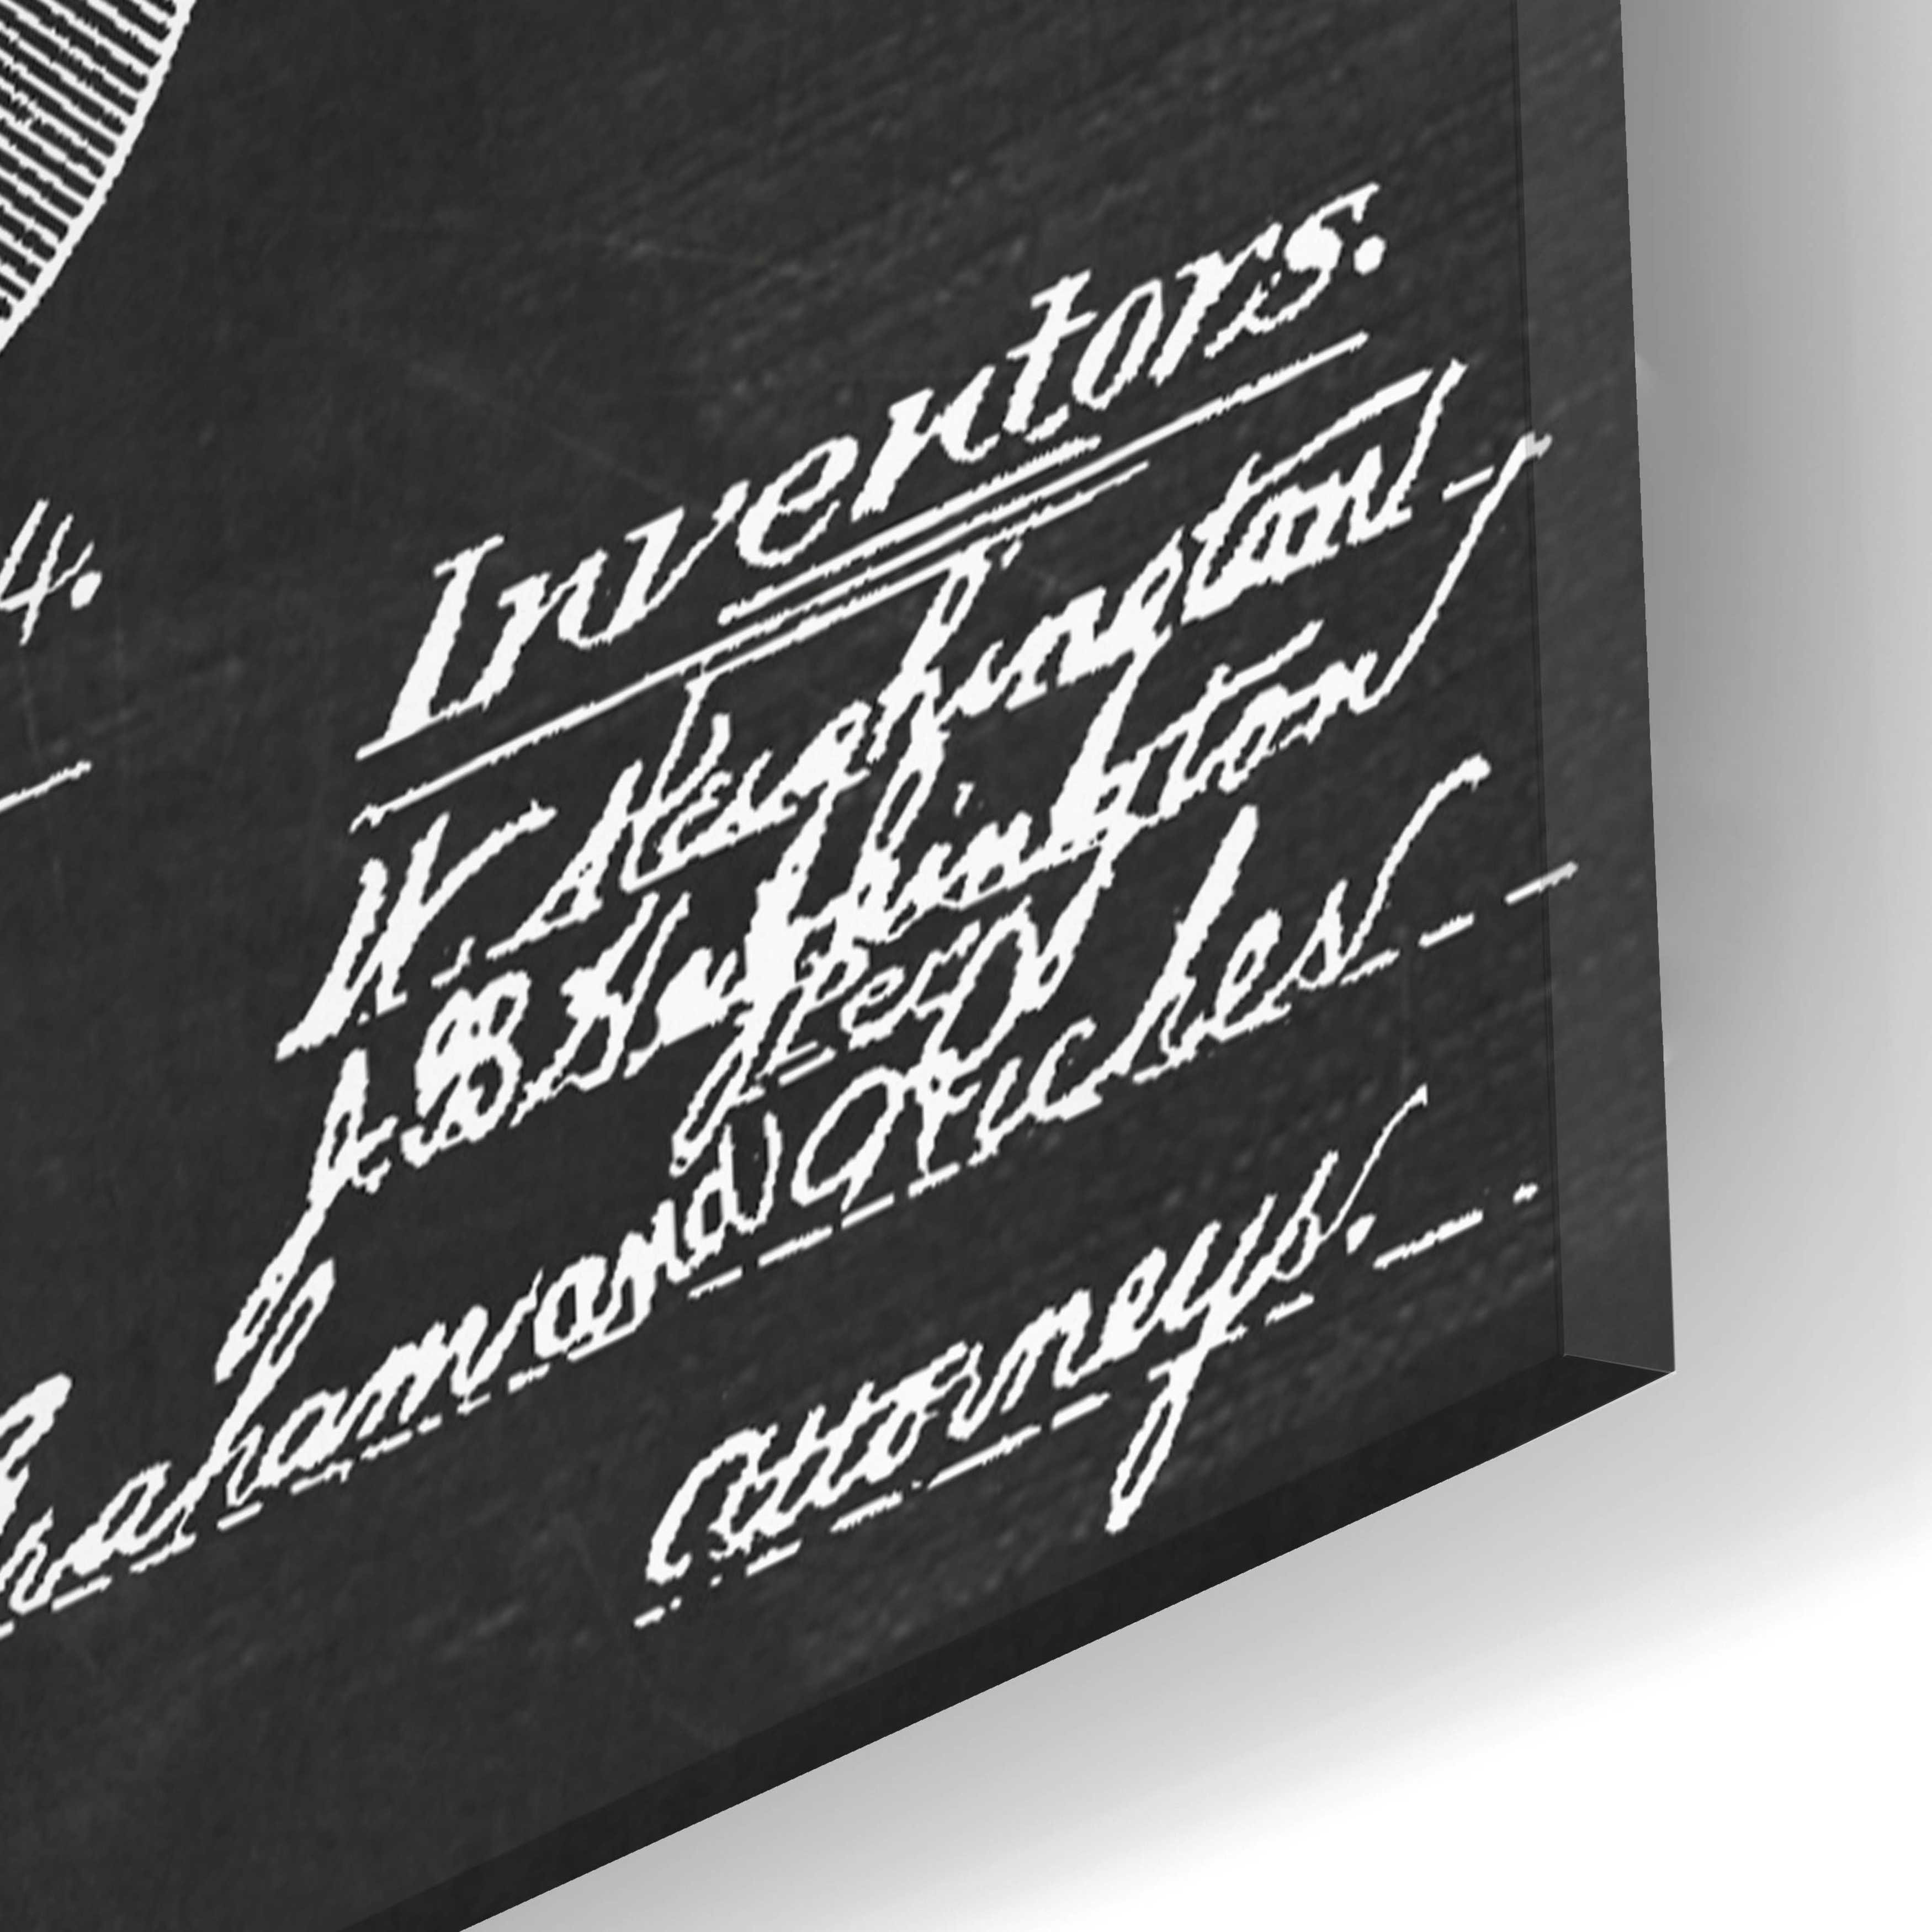 4.
Inventors.
W. Heughington
J. B. Hughington
per
raham and Riches
Attorneys.